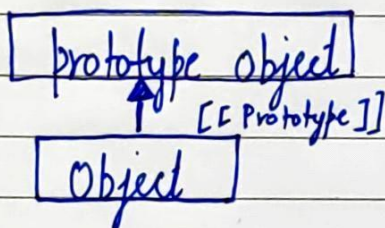 prototype object
[[Prototype]]
Object